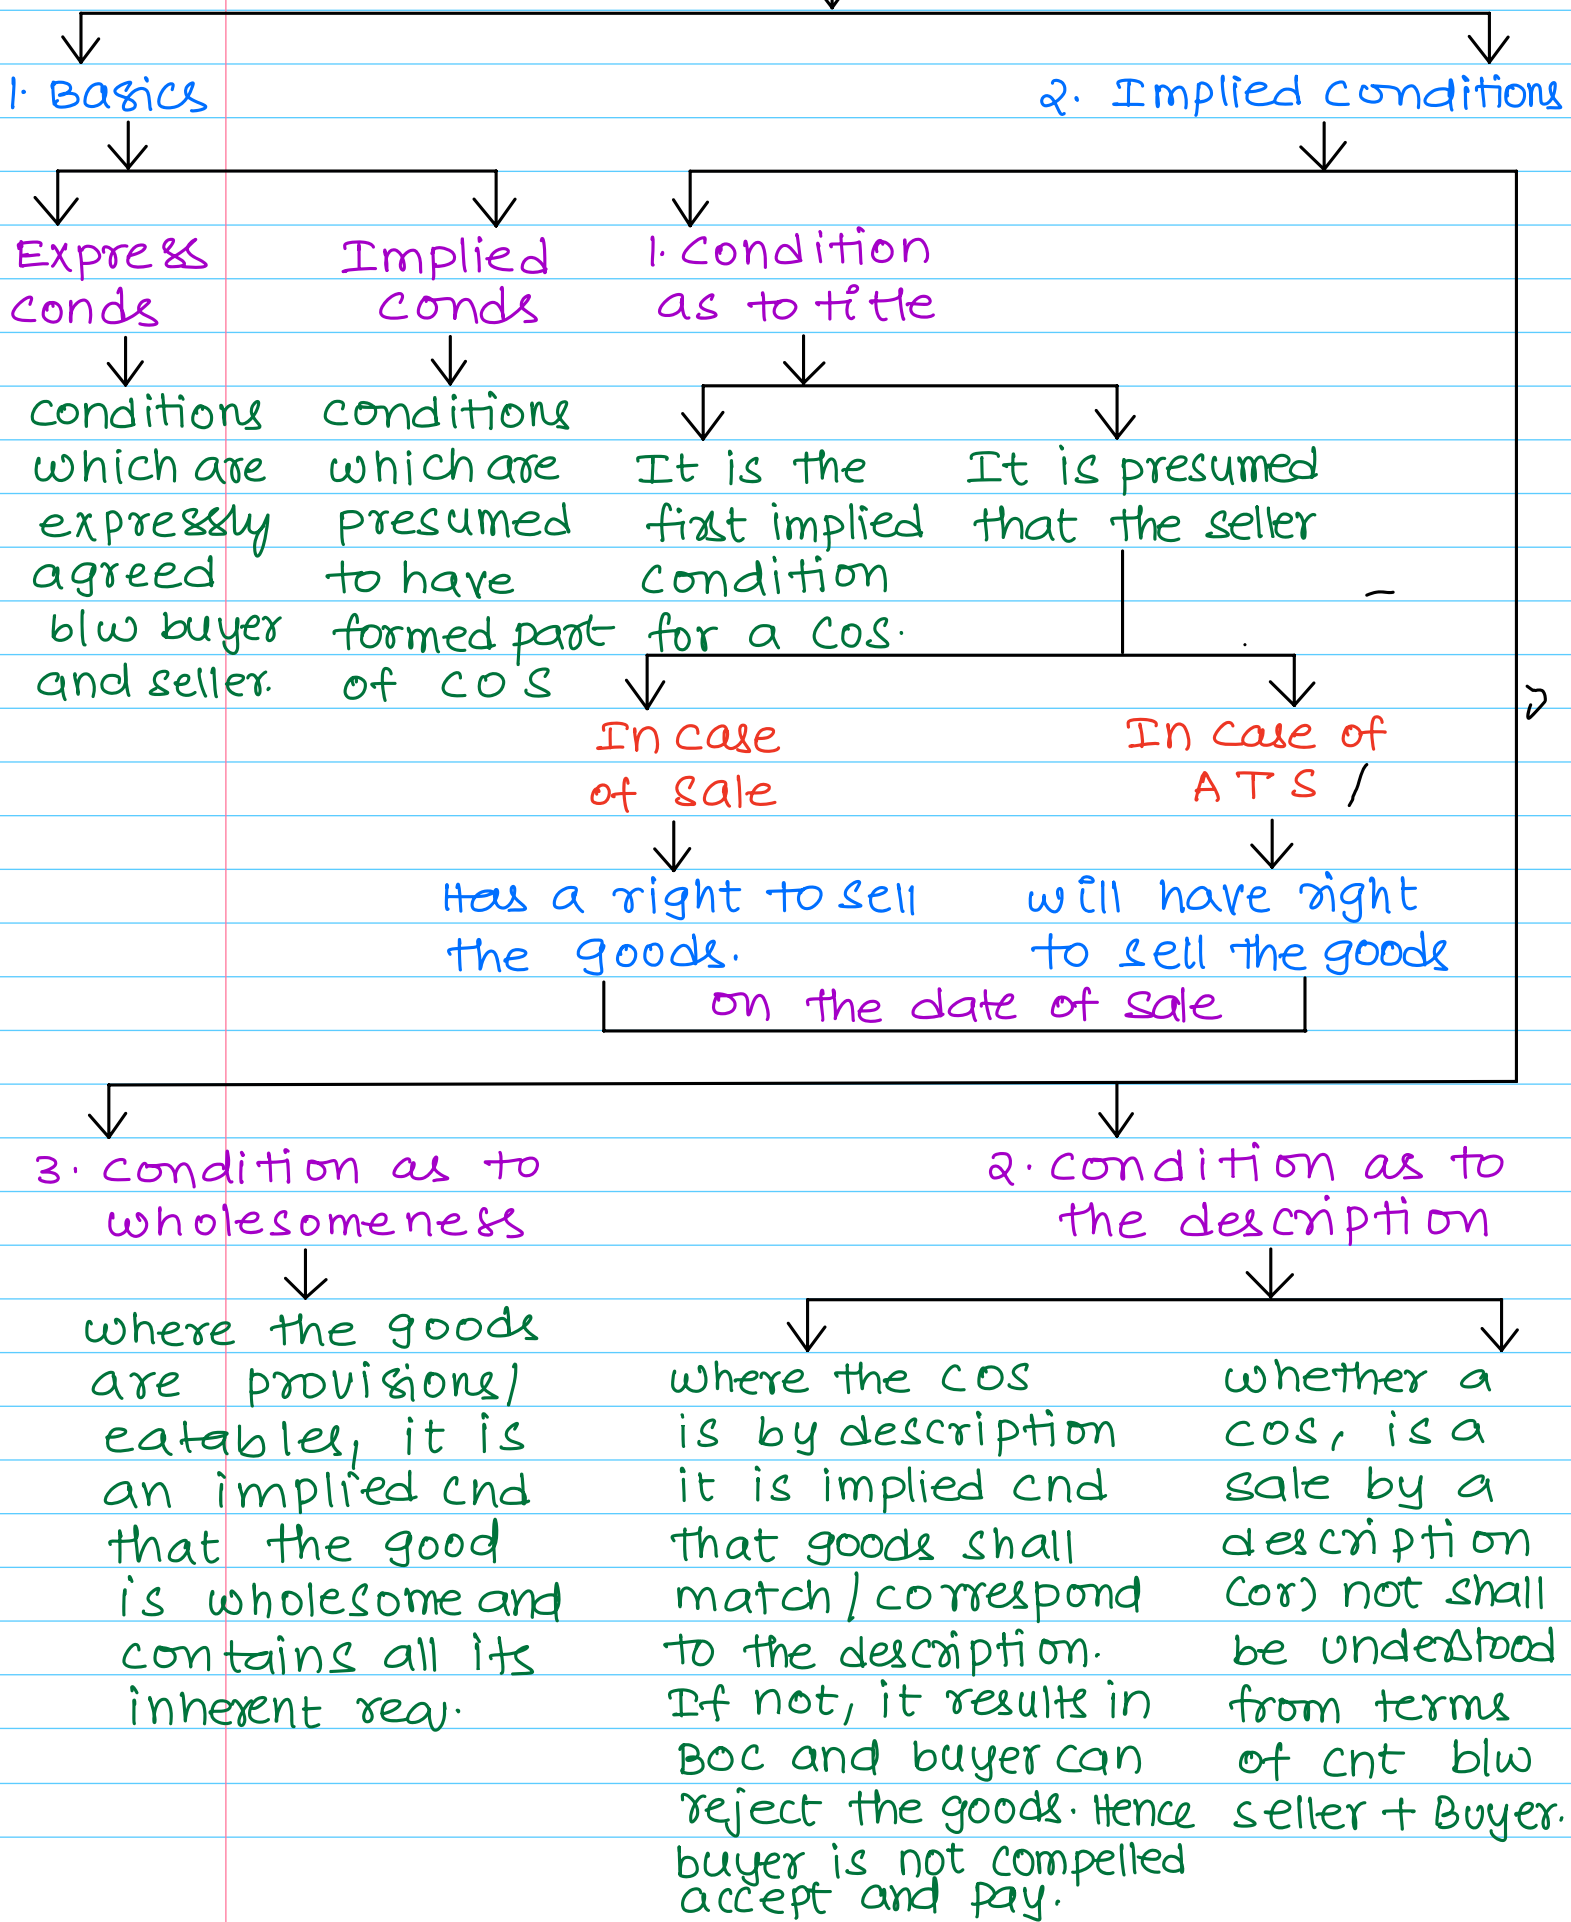 1. Basics
2. Implied Conditions
Express
conds
Implied
conds
1. Condition
as to title
conditions
which are
expressly
agreed
b/w buyer
and seller.
conditions
which are
presumed
to have
formed part
of COS
It is the
first implied
condition
for a COS.
It is presumed
that the seller
In case
of sale
In case of
ATS /
Has a right to sell
the goods.
will have right
to sell the goods
on the date of sale
3. Condition as to
wholesomeness
2. Condition as to
the description
where the goods
are provisions/
eatables, it is
an implied cnd
that the good
is wholesome and
contains all its
inherent req.
where the COS
is by description
it is implied cnd
that goods shall
match/correspond
to the description.
If not, it results in
BOC and buyer can
reject the goods. Hence
buyer is not compelled
accept and pay.
whether a
COS, is a
sale by a
description
(or) not shall
be understood
from terms
of cnt b/w
seller + Buyer.